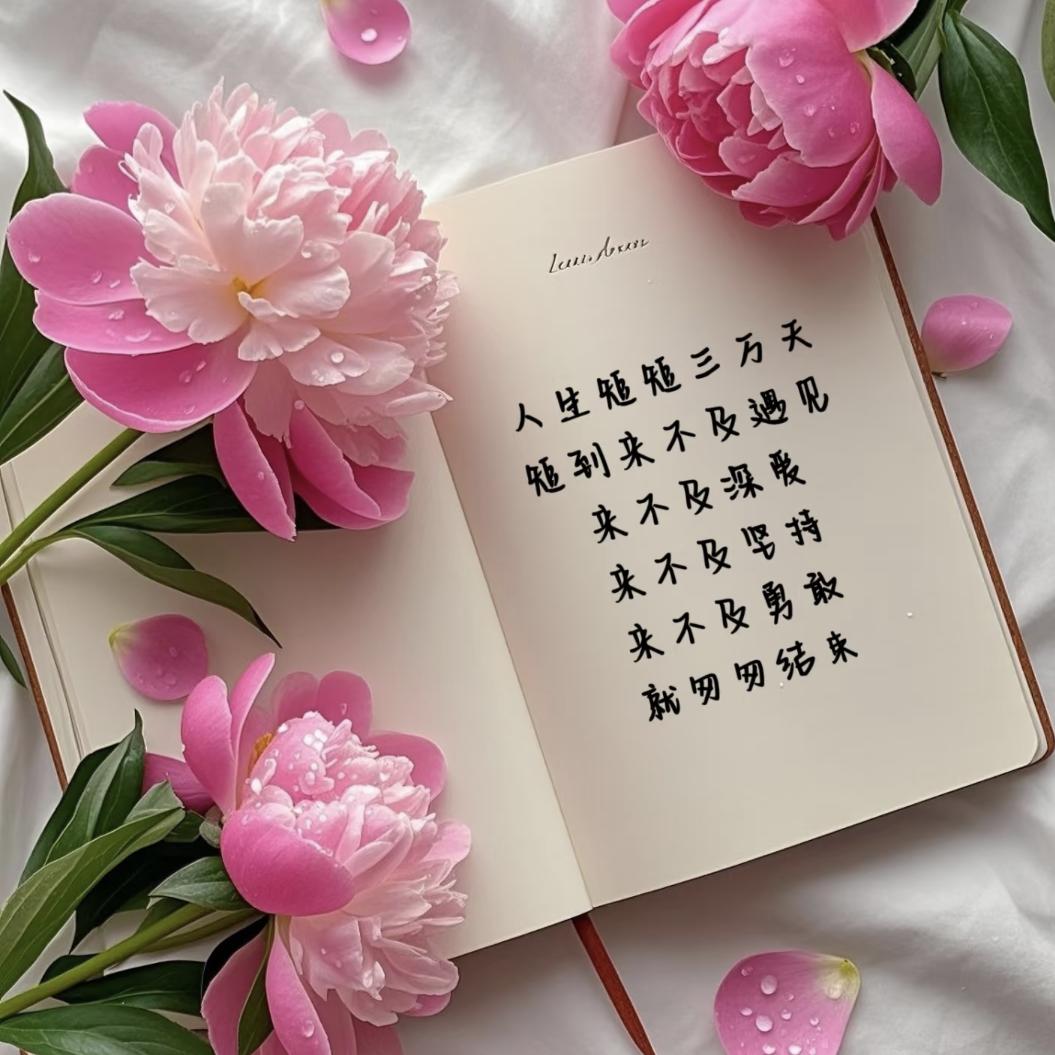 人生短短三万天
短到来不及遇见
来不及深爱
来不及坚持
来不及勇敢
就匆匆结束